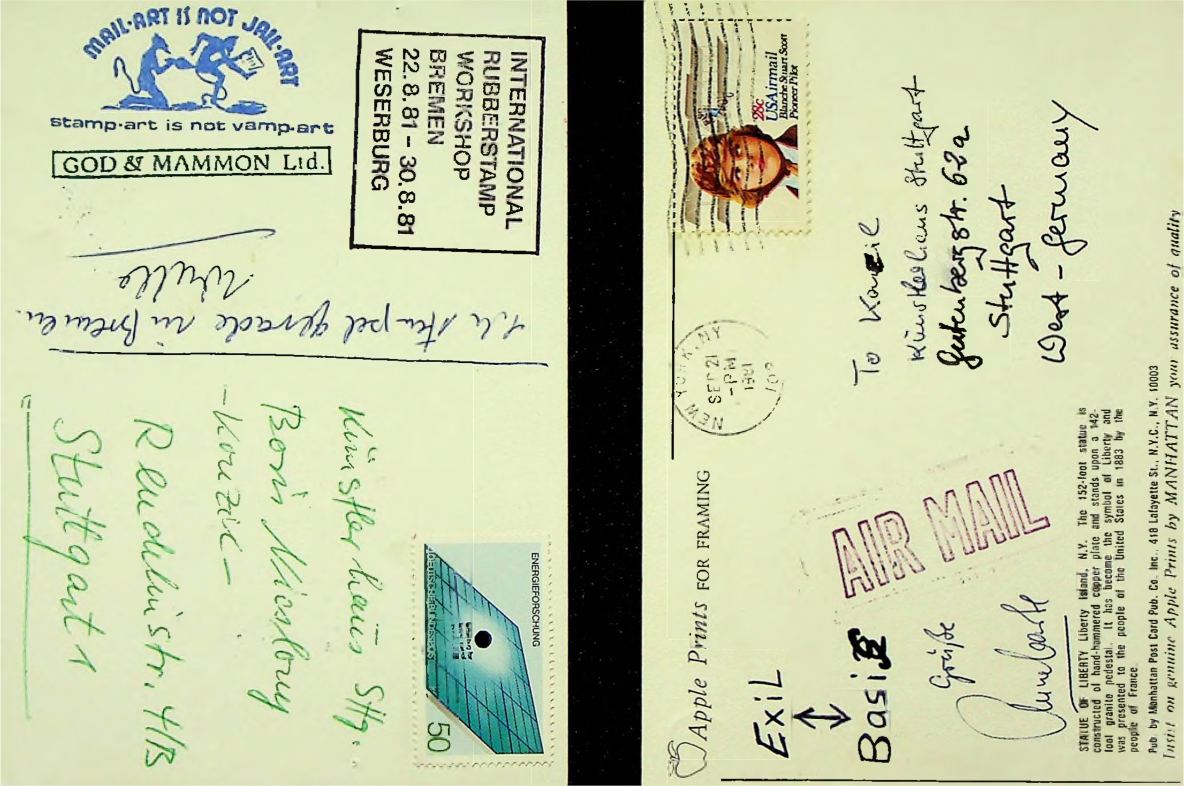 MAIL-ART IS NOT JAIL-ART
stamp-art is not vamp-art
GOD & MAMMON Ltd.
INTERNATIONAL
RUBBERSTAMP
WORKSHOP
BREMEN
22.8.81 – 30.8.81
WESERBURG
Stempel gerade in Bremen.
Künstlerhaus Sttg.
Boris
Stuttgart 1
ENERGIEFORSCHUNG
DEUTSCHE BUNDESPOST
50
28c
USAirmail
Blanche Stuart Scott
Pioneer Pilot
NEW YORK, NY
SEP 21
-PM-
1981
To
Künstlerhaus Stuttgart
Gutenbergstr. 62a
Stuttgart
West-Germany
AIR MAIL
Apple Prints FOR FRAMING
Exil
↕
Basis
Grüße
STATUE OF LIBERTY Liberty Island, N.Y. The 152-foot statue is
constructed of hand-hammered copper plate and stands upon a 142-
foot granite pedestal. It has become the symbol of Liberty and
was presented to the people of the United States in 1883 by the
people of France.
Pub. by Manhattan Post Card Pub. Co. Inc., 418 Lafayette St., N.Y.C., N.Y. 10003
Insist on genuine Apple Prints by MANHATTAN your assurance of quality